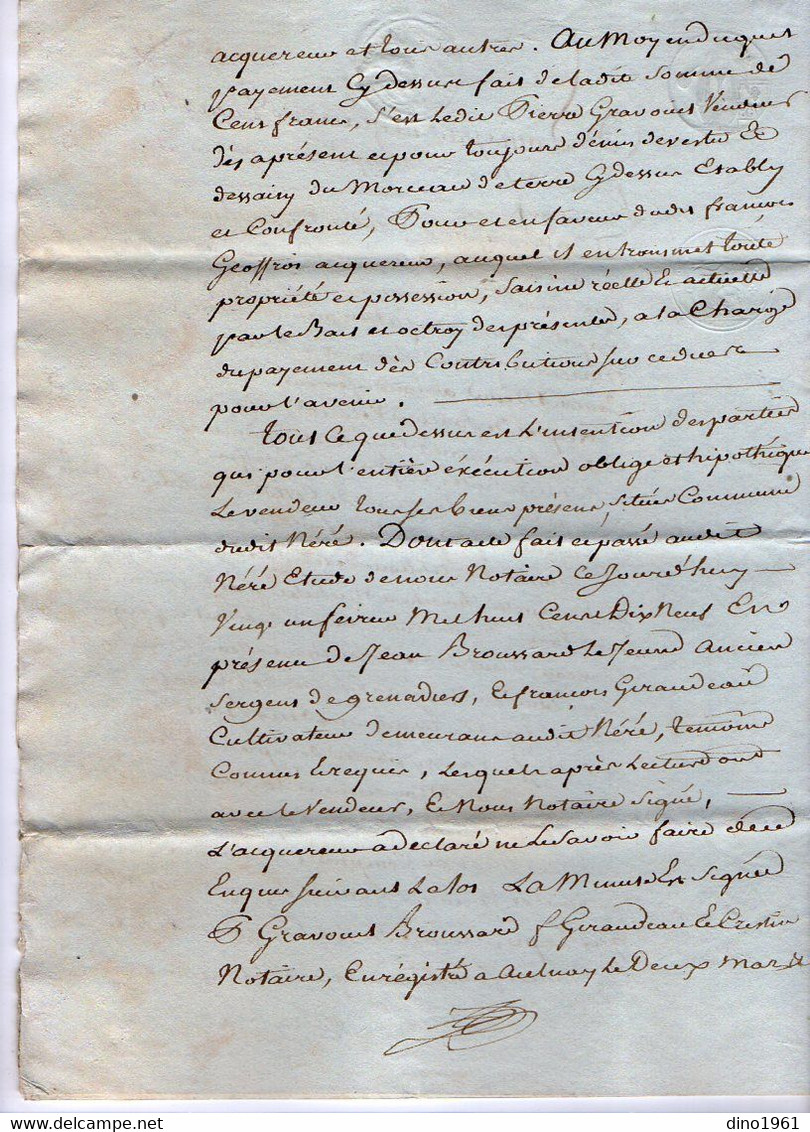 acquereur et tous autres. Au Moyen duquel
payement Cy dessus fait de ladite somme de
Cent francs, s'est ledit Pierre Gravouil Vendeur
dès aprésent et pour toujours démis devestu et
dessaisy du Morceau de terre Cy dessus Etably
et Confronté, Pour et en faveur dudit françois
Geoffroi acquereur, auquel il en transmet toute
propriété et possession, saisine réelle et actuelle
par le Bail et octroy des présentes, a la Charge
du payement des Contributions sur ce dues
pour l'avenir.
Tout ce que dessus est l'intention des parties
qui pour l'entière éxécution oblige et hipothèque
le vendeur tous ses biens présens, situés Commune
dudit Néré. Dont acte fait et passé audit
Néré Etude de nous Notaire Ce Jourd'huy
Vingt un fevrier Mil huit Cent Dix Neuf En
présence de Jean Broussard le Jeune Ancien
sergent de grenadiers, et françois Giraudeau
Cultivateur demeurant audit Néré, temoins
Connus et requis, lesquels après lecture ont
avec le Vendeur, et Nous Notaire signé,
l'acquereur a declaré ne le savoir faire de ce
Enquis suivant la loi La Minute Est signée
P Gravouil Broussard f Giraudeau et
Notaire, Enrégistré a Aulnay le Deux mars
dino1961